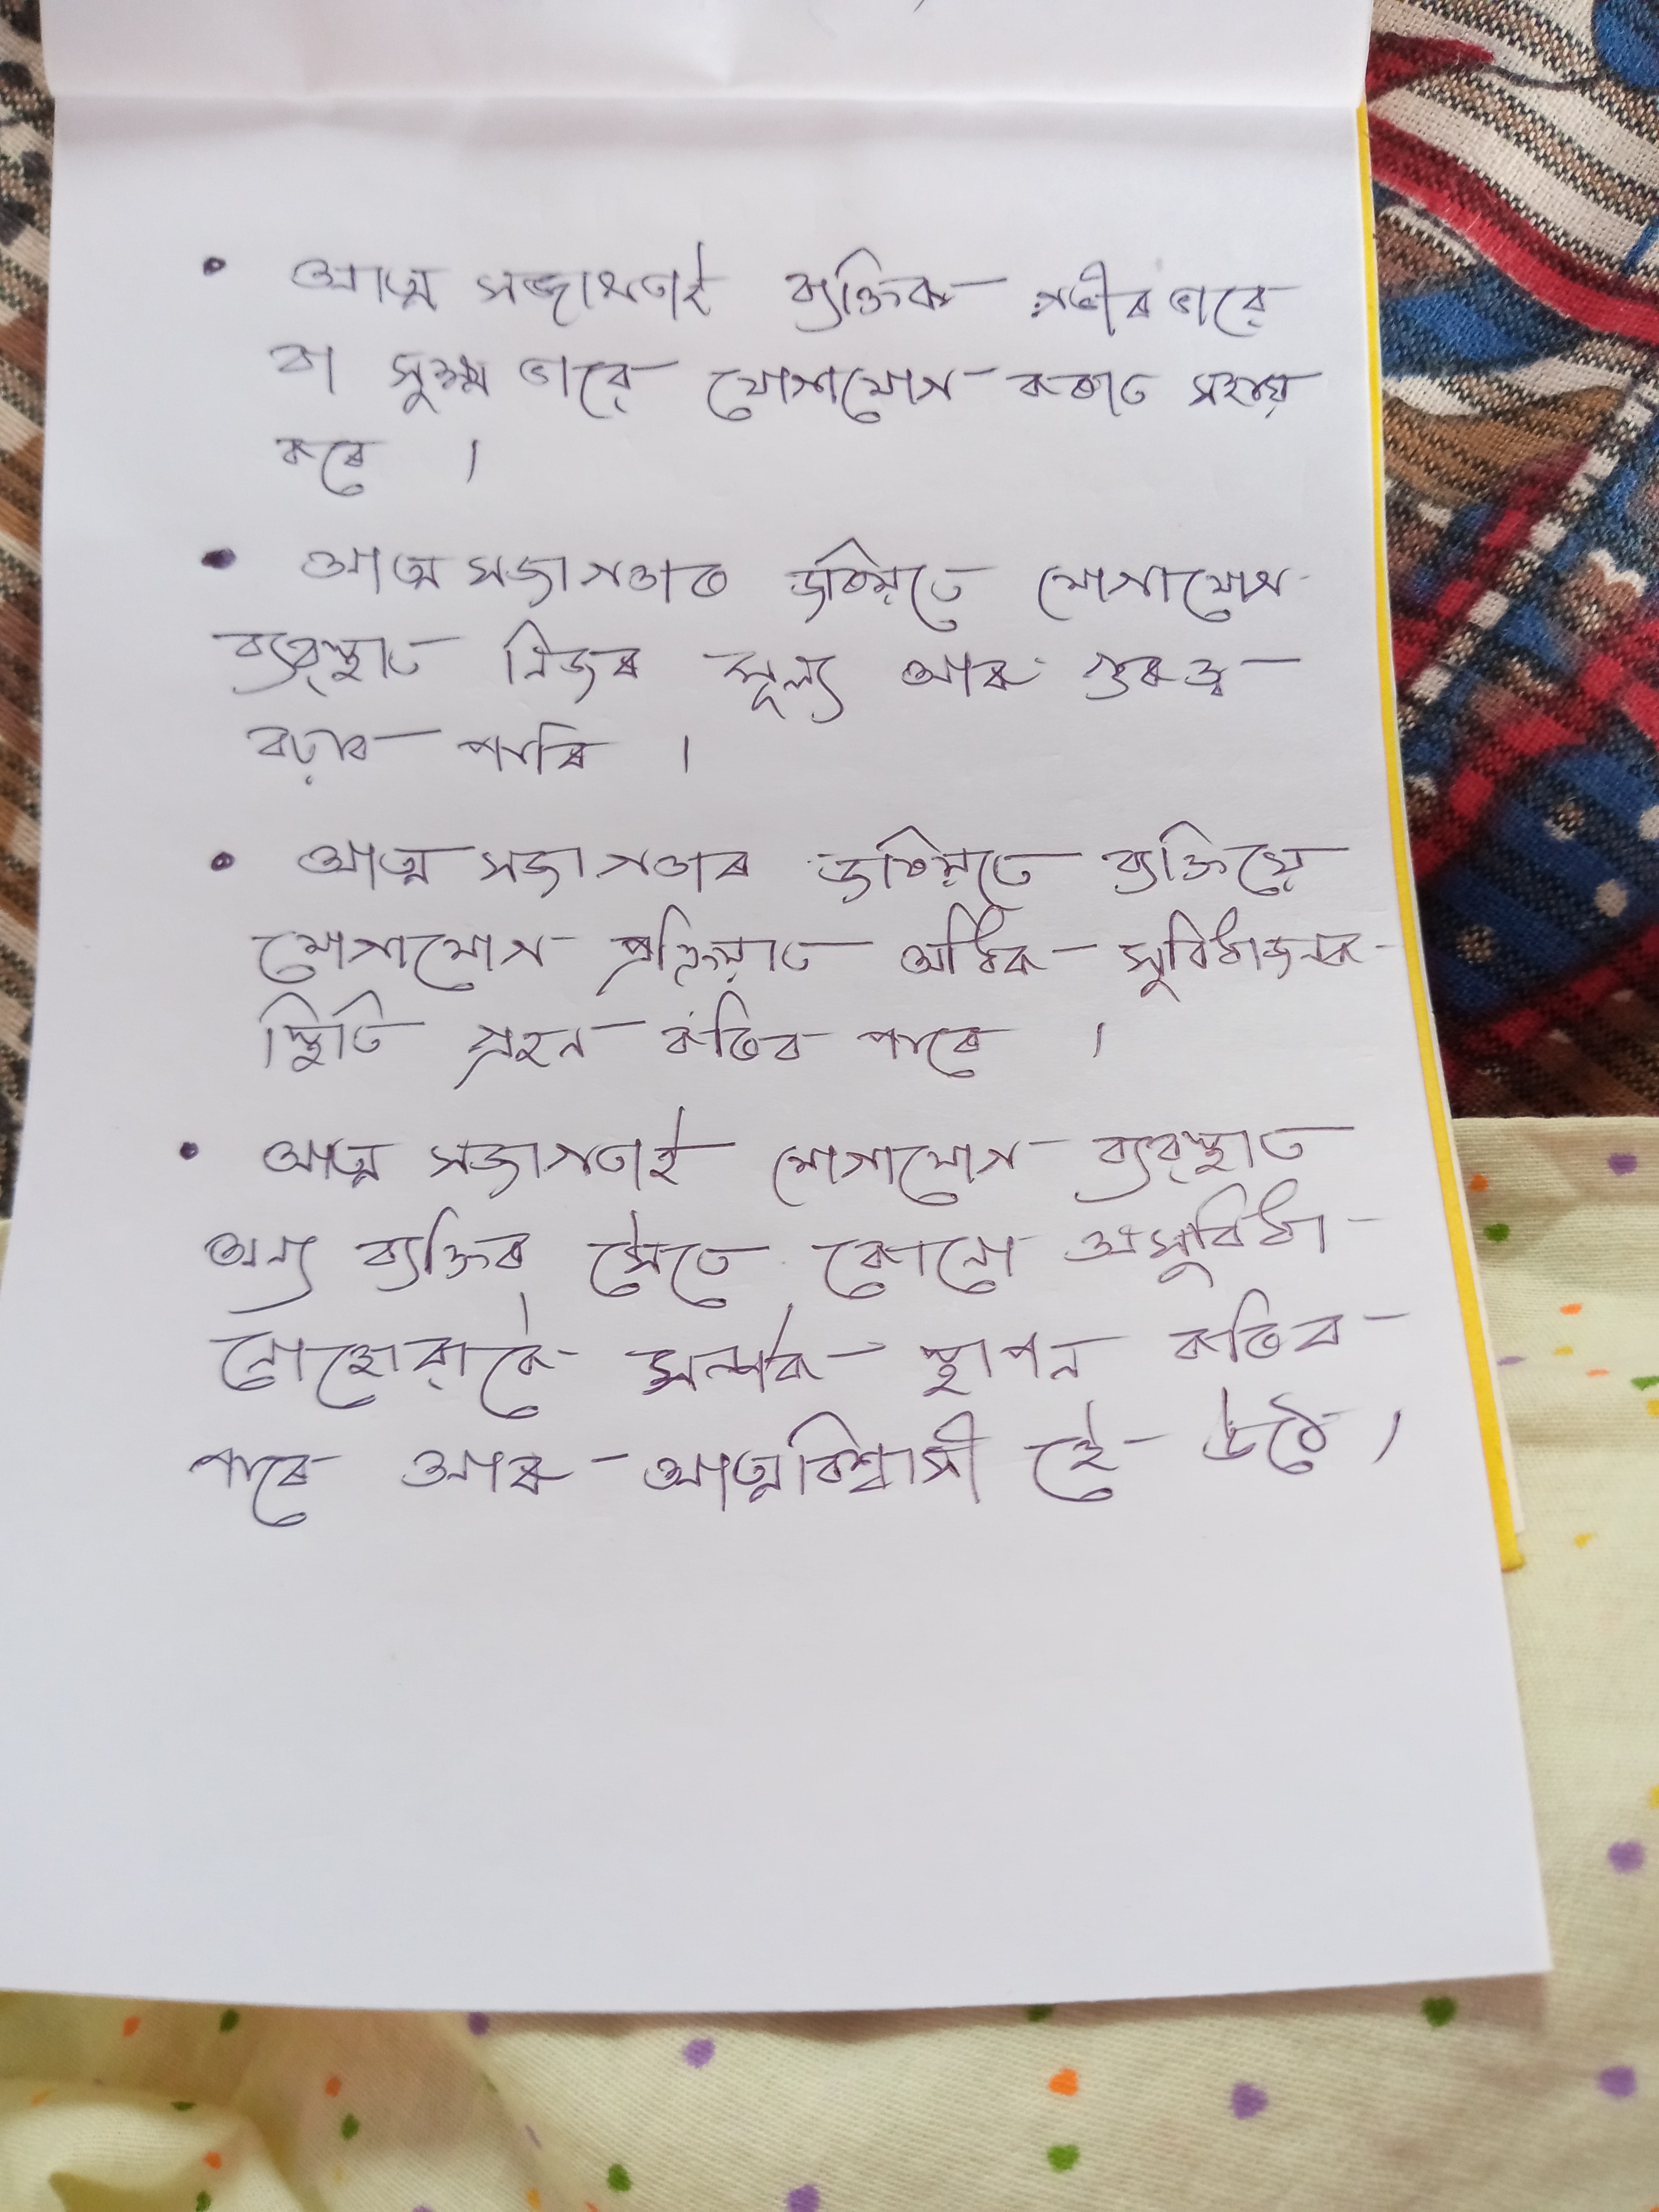 • আত্ম সজাগতাই ব্যক্তিক গভীৰভাৱে
বা সুক্ষ্ম ভাৱে যোগাযোগ কৰাত সহায়
কৰে ।
• আত্ম সজাগতাৰ জৰিয়তে যোগাযোগ
ব্যৱস্থাত নিজৰ মূল্য আৰু গুৰুত্ব
বঢ়াব পাৰি ।
• আত্ম সজাগতাৰ জৰিয়তে ব্যক্তিয়ে
যোগাযোগ প্ৰক্ৰিয়াত অধিক সুবিধাজনক
স্থিতি গ্ৰহন কৰিব পাৰে ।
• আত্ম সজাগতাই যোগাযোগ ব্যৱস্থাত
অন্য ব্যক্তিৰ সৈতে কোনো অসুবিধা
নোহোৱাকৈ সম্পৰ্ক স্থাপন কৰিব
পাৰে আৰু আত্মবিশ্বাসী হৈ উঠে ।